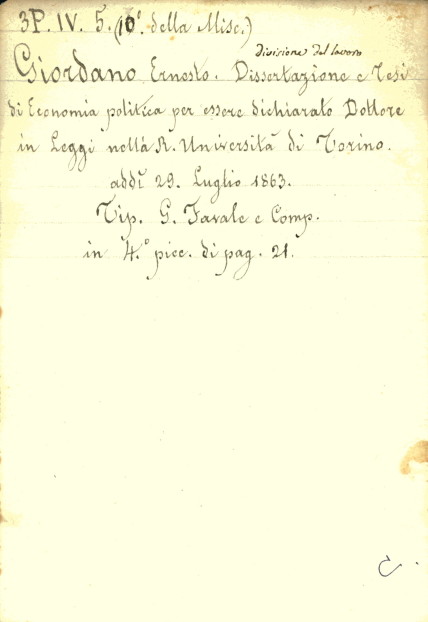 3P. IV. 5. (10.° della Misc.)
divisione del lavoro
Giordano Ernesto. Dissertazione e Tesi
di Economia politica per essere dichiarato Dottore
in Leggi nella R. Università di Torino.
addì 29. Luglio 1863.
Tip. G. Favale e Comp.
in 4.° picc. di pag. 21.